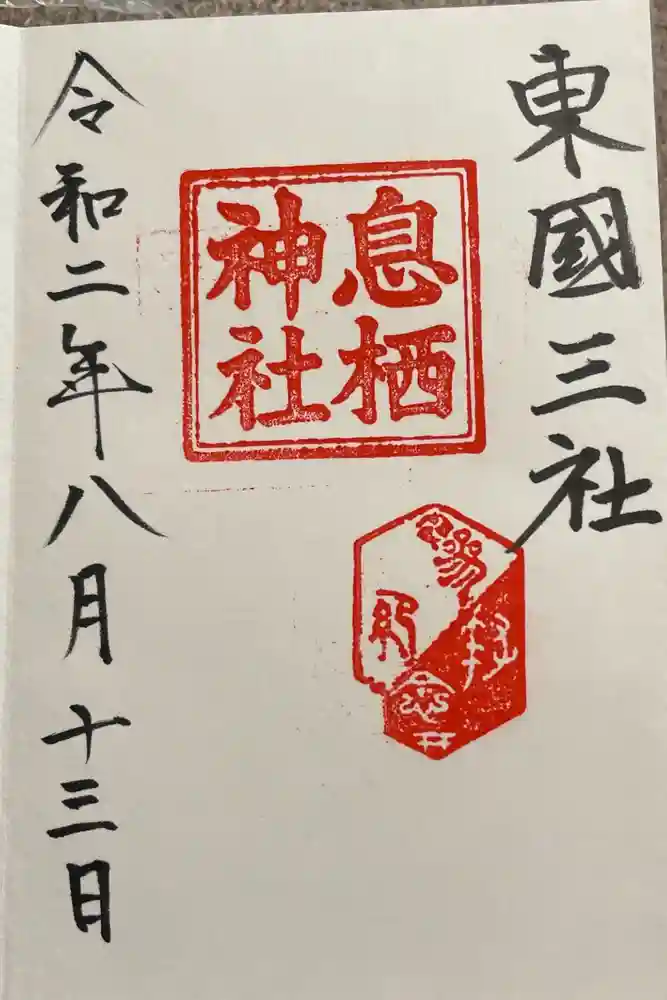 東國三社
息栖
神社
令和二年八月十三日